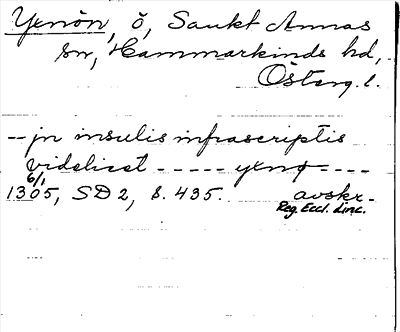 Yxnön, ö, Sankt Annas
sn, Hammarkinds hd,
Österg. l.
-- jn insulis infrascriptis
videlicet ----- yxnø ----
6/1
1305, SD 2, s. 435. avskr.
Reg. Eccl. Linc.